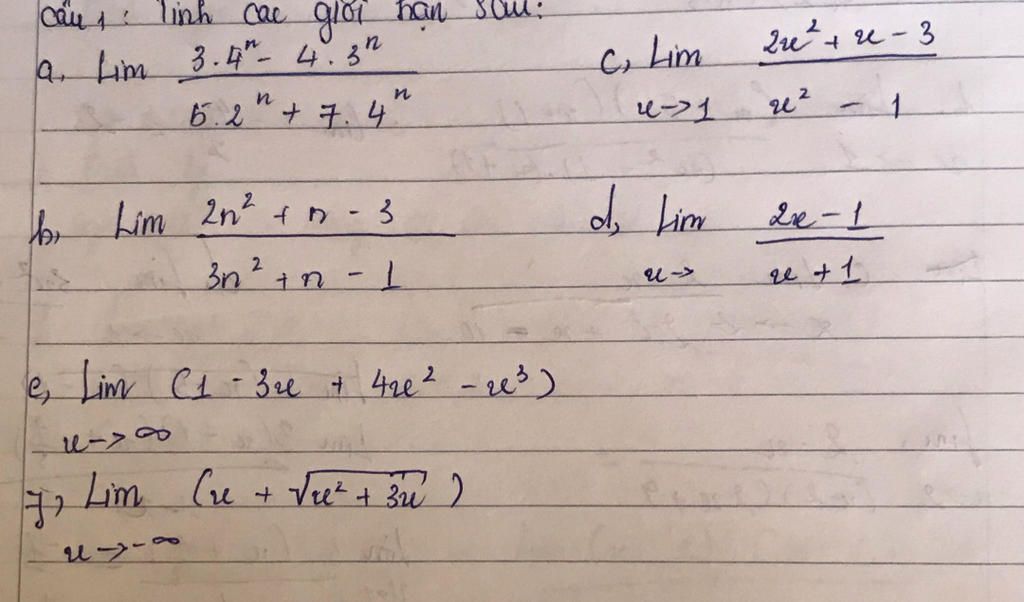 câu 1: Tính các giới hạn sau:
a, Lim (3.4^n - 4.3^n)/(5.2^n + 7.4^n)
c, Lim x->1 (2x² + x - 3)/(x² - 1)
b, Lim (2n² + n - 3)/(3n² + n - 1)
d, Lim x-> (2x - 1)/(x + 1)
e, Lim (1 - 3x + 4x² - x³)
x -> ∞
f, Lim (x + √(x² + 3x))
x -> -∞